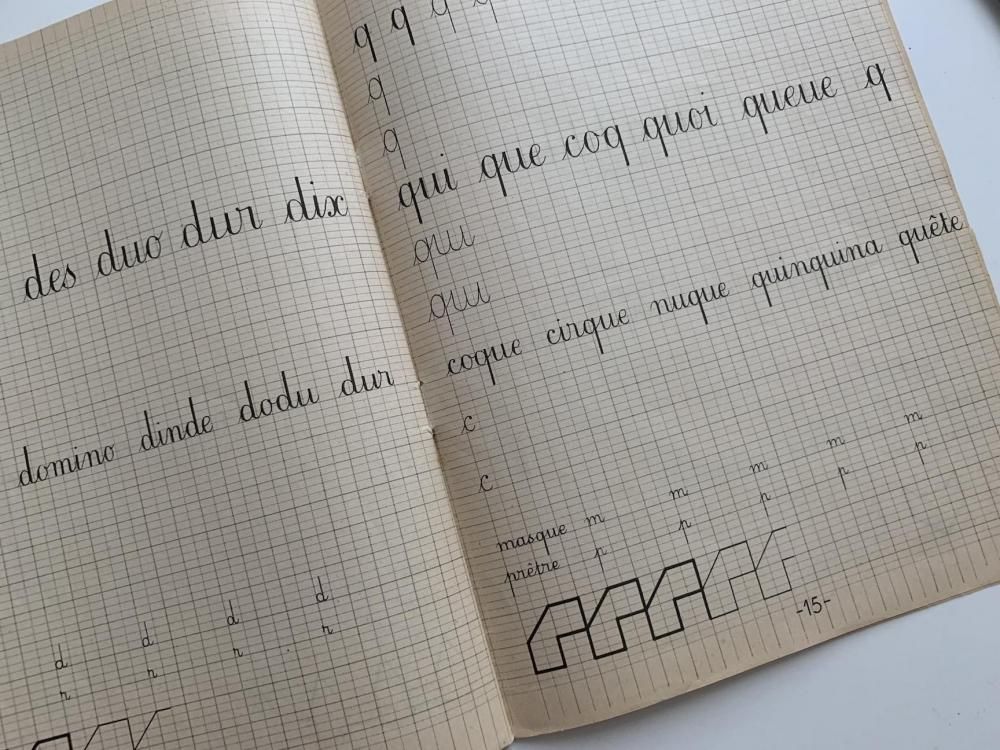 des duo dur dix
domino dinde dodu dur
d d d d
r r r r
q q q q
q
q
qui que coq quoi queue q
qui
qui
coque cirque nuque quinquina quête
c
c
masque m m m m m
prêtre p p p p p
-15-